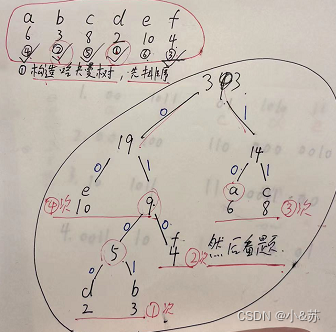 a b c d e f
6 3 8 2 10 4
④ ② ⑤ ① ⑥ ③
① 构造哈夫曼树,先排序
33
0 1
19 14
0 1 0 1
e 9 a c
10 6 8
④次 ③次
0 0
5 f
4 ②次 然后看题
0 1
d b
2 3 ①次
CSDN @小&苏